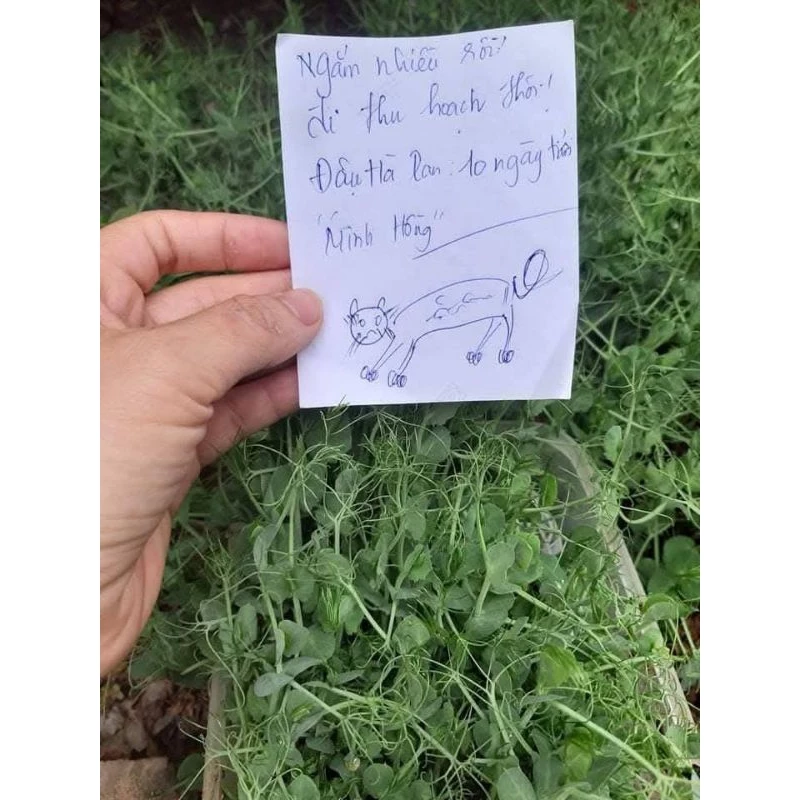 Ngắm nhiều rồi!
đi thu hoạch thôi!
Đậu Hà Lan: 10 ngày tuổi
"Minh Hồng"